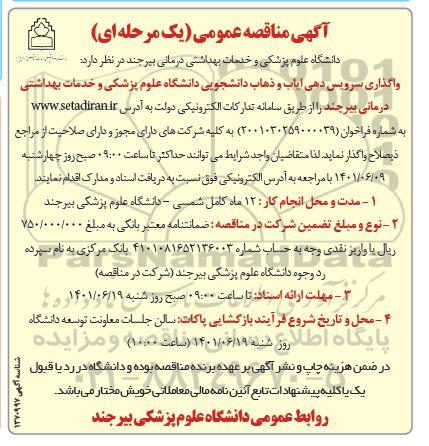 آگهی مناقصه عمومی (یک مرحله ای)
دانشگاه علوم پزشکی و خدمات بهداشتی درمانی بیرجند در نظر دارد:
واگذاری سرویس دهی ایاب و ذهاب دانشجویی دانشگاه علوم پزشکی و خدمات بهداشتی
درمانی بیرجند را از طریق سامانه تدارکات الکترونیکی دولت به آدرس www.setadiran.ir
به شماره فراخوان (2001030259000039) به کلیه شرکت های دارای مجوز و دارای صلاحیت از مراجع
ذیصلاح واگذار نماید. لذا متقاضیان واجد شرایط می توانند حداکثر تا ساعت 09:00 صبح روز چهارشنبه
1401/06/09 با مراجعه به آدرس الکترونیکی فوق نسبت به دریافت اسناد و مدارک اقدام نمایند.
1- مدت و محل انجام کار: 12 ماه کامل شمسی - دانشگاه علوم پزشکی بیرجند
2- نوع و مبلغ تضمین شرکت در مناقصه: ضمانتنامه معتبر بانکی به مبلغ 750/000/000
ریال یا واریز نقدی وجه به حساب شماره 4101081652136003 بانک مرکزی به نام سپرده
رد وجوه دانشگاه علوم پزشکی بیرجند (شرکت در مناقصه)
3- مهلت ارائه اسناد: تا ساعت 09:00 صبح روز شنبه 1401/06/19
4- محل و تاریخ شروع فرآیند بازگشایی پاکات: سالن جلسات معاونت توسعه دانشگاه
روز شنبه 1401/06/19 (ساعت 10:00)
در ضمن هزینه چاپ و نشر آگهی بر عهده برنده مناقصه بوده و دانشگاه در رد یا قبول
یک یا کلیه پیشنهادات تابع آئین نامه مالی معاملاتی خویش مختار می باشد.
روابط عمومی دانشگاه علوم پزشکی بیرجند
شناسه آگهی 1370997